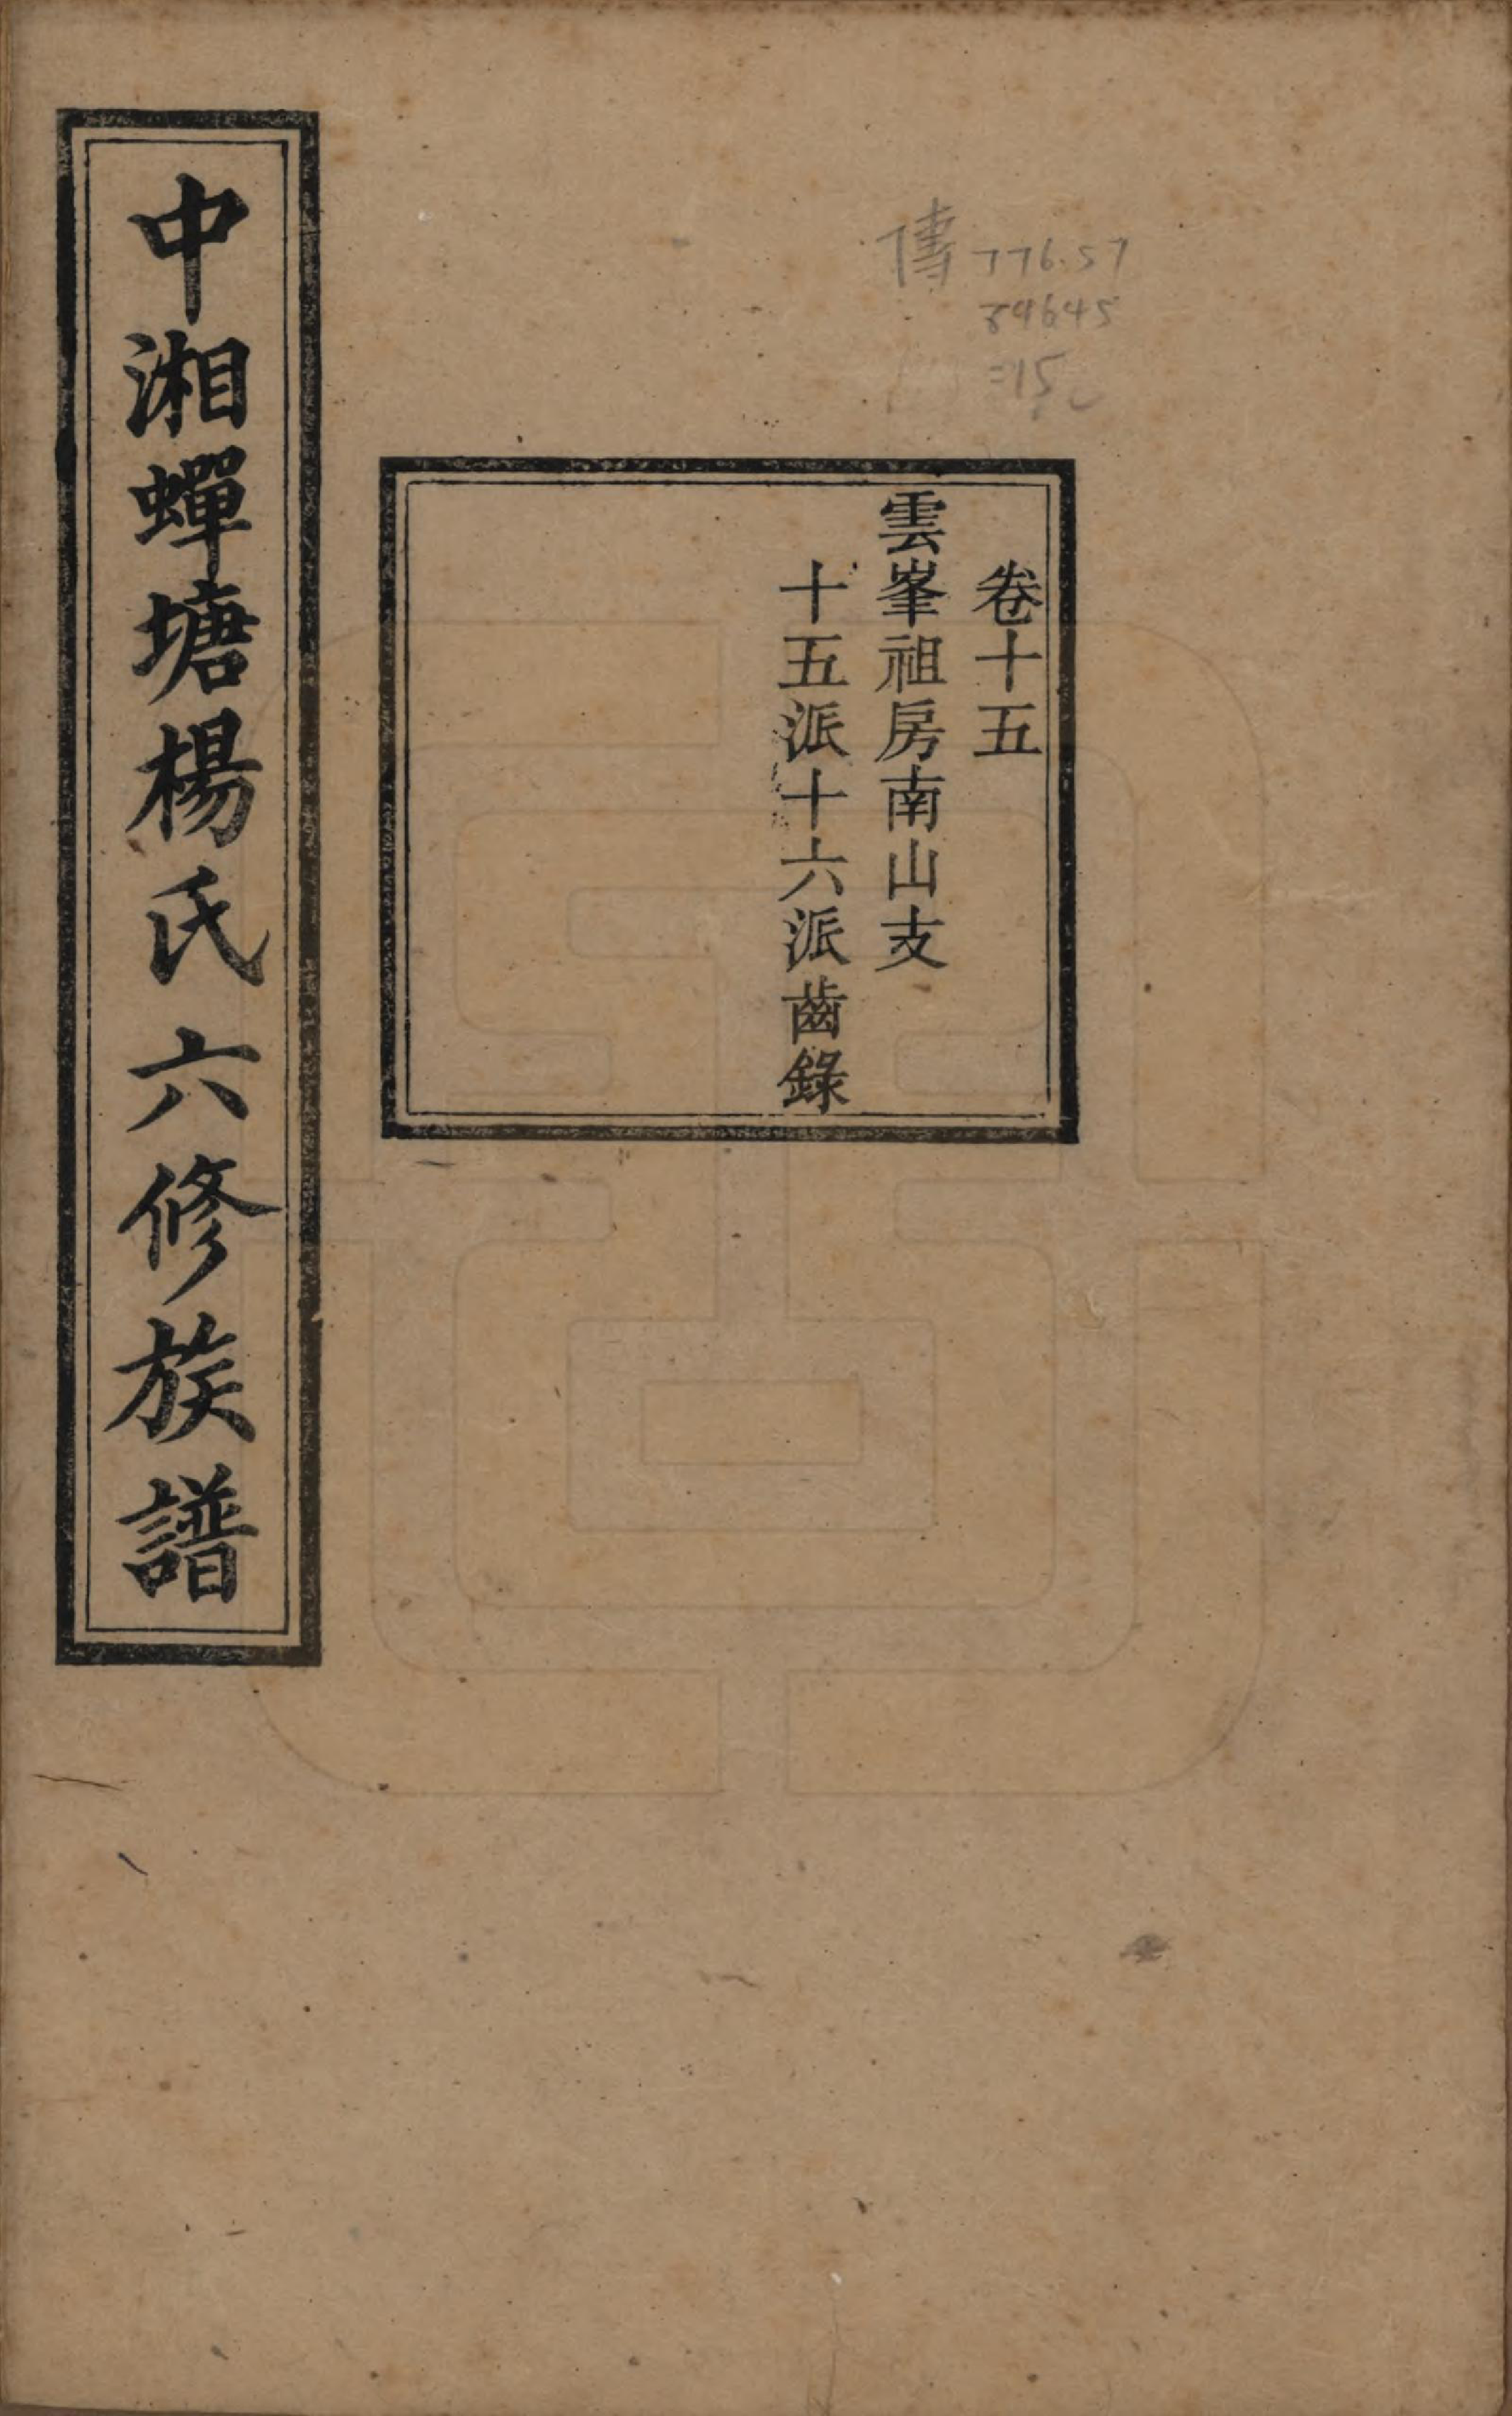 傳 776.57
89645
=15
卷十五
雲峯祖房南山支
十五派十六派齒錄
中湘蟬塘楊氏六修族譜